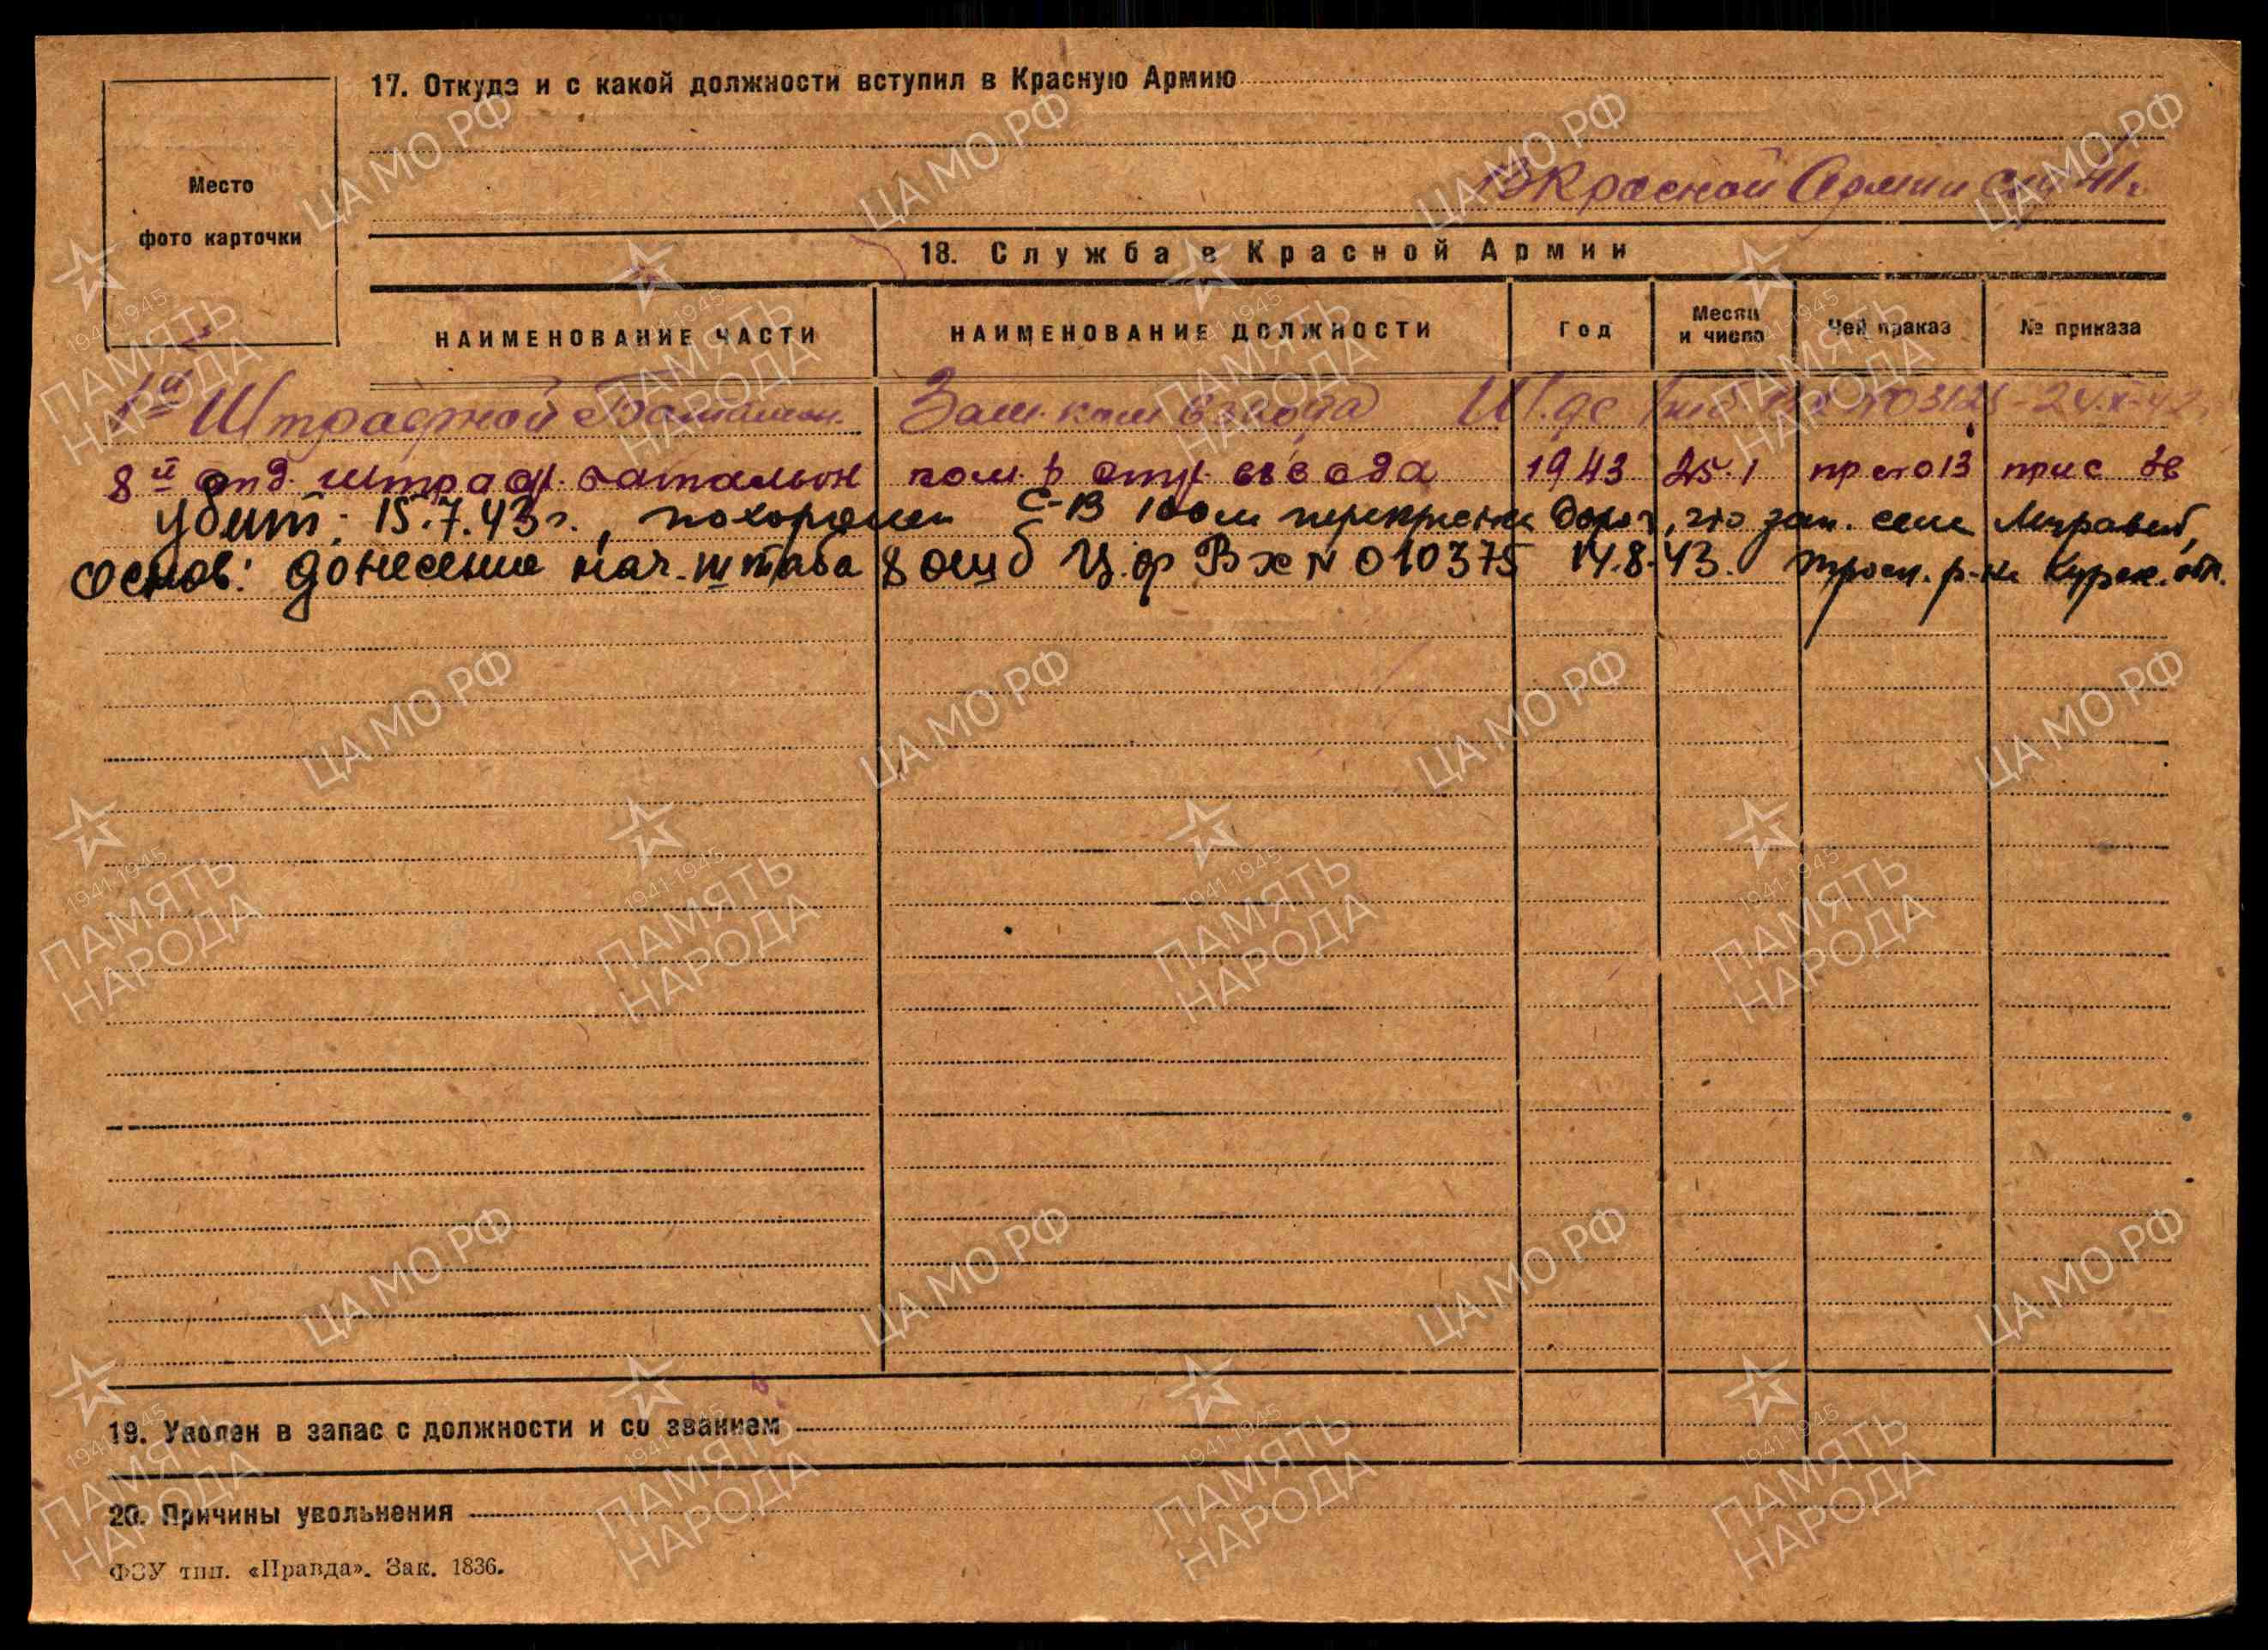 17. Откуда и с какой должности вступил в Красную Армию
Место
фото карточки
В Красной Армии с 41г.
18. Служба в Красной Армии
НАИМЕНОВАНИЕ ЧАСТИ НАИМЕНОВАНИЕ ДОЛЖНОСТИ Год Месяц и число Чей приказ № приказа
1й Штрафной Батальон. Зам. ком взвода
8й отд. штраф. батальон ком-р стр. взвода 1943 25.1
убит: 15.7.43г., похоронен С-В 100м перекрестка дорог, что зап.
основ: донесение нач. штаба 8 ошб Ц.ф Вх N 010375 14.8.43. р-на Курск. обл.
19. Уволен в запас с должности и со званием
20. Причины увольнения
ФЗУ тип. «Правда». Зак. 1836.
ЦА МО РФ
1941-1945
ПАМЯТЬ
НАРОДА